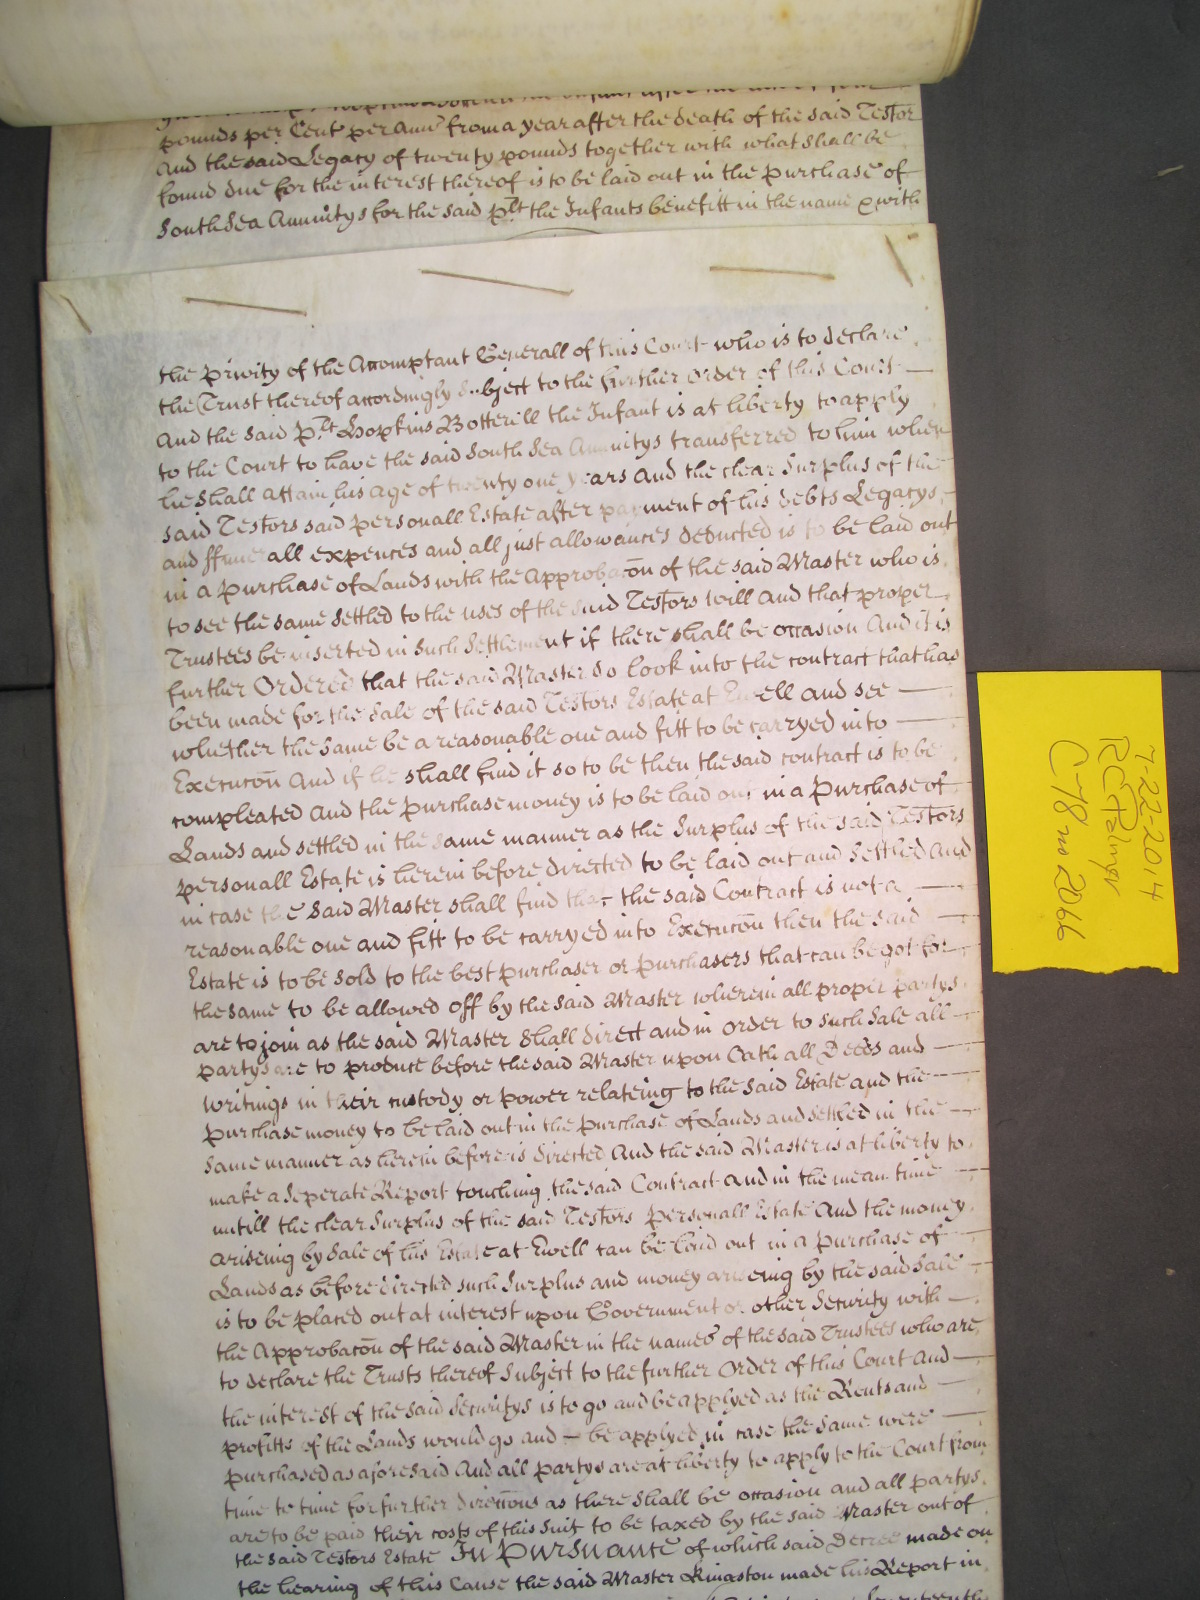 pounds per Cent per Annu from a year after the death of the said Testor
And the said Legacy of twenty pounds together with what shall be
found due for the interest thereof is to be laid out in the purchase of
South Sea Annuitys for the said Plt the Infants benefitt in the name & with
the Privity of the Accomptant Generall of this Court who is to declare
the Trust thereof accordingly subject to the further Order of this Court
And the said Plt Hopkins Botterill the Infant is at liberty to apply
to the Court to have the said South Sea Annuitys transferred to him when
he shall attain his age of twenty one years And the clear Surplus of the
said Testors said personall Estate after payment of his debts Legacys
and ffunerall expences and all just allowances deducted is to be laid out
in a purchase of Lands with the Approbacon of the said Master who is
to see the same settled to the uses of the said Testors Will And that proper
Trustees be inserted in such Settlement if there shall be occasion And it is
further Ordered that the said Master do look into the contract that has
been made for the Sale of the said Testors Estate at Ewell and see
whether the same be a reasonable one and fitt to be carryed into
Execucon And if he shall find it so to be then the said contract is to be
compleated And the purchase money is to be laid out in a Purchase of
Lands and settled in the same manner as the Surplus of the said Testors
personall Estate is herein before directed to be laid out and settled And
in case the said Master shall find that the said Contract is not a
reasonable one and fitt to be carryed into Execucon then the said
Estate is to be sold to the best purchaser or purchasers that can be got for
the same to be allowed off by the said Master wherein all proper partys
are to join as the said Master shall direct and in order to such Sale all
partys are to produce before the said Master upon Oath all Deeds and
writings in their custody or power relateing to the said Estate and the
purchase money to be laid out in the purchase of Lands and settled in the
same manner as herein before is directed And the said Master is at liberty to
make a Seperate Report touching the said Contract and in the mean time
untill the clear Surplus of the said Testors personall Estate And the money
ariseing by Sale of his Estate at Ewell can be laid out in a purchase of
Lands as before directed such Surplus and money ariseing by the said Sale
is to be placed out at interest upon Government or other Security with
the Approbacon of the said Master in the names of the said Trustees who are
to declare the Trusts thereof Subject to the further Order of this Court And
the interest of the said Securitys is to go and be applyed as the Rents and
profitts of the Lands would go and be applyed in case the same were
purchased as aforesaid And all partys are at liberty to apply to the Court from
time to time for further direccons as there shall be occasion and all partys
are to be paid their costs of this Suit to be taxed by the said Master out of
the said Testors Estate In Pursuance of which said Decree made on
the hearing of this Cause the said Master Kingston made his Report in
7-22-2014
RC Palmer
C78 no 2066